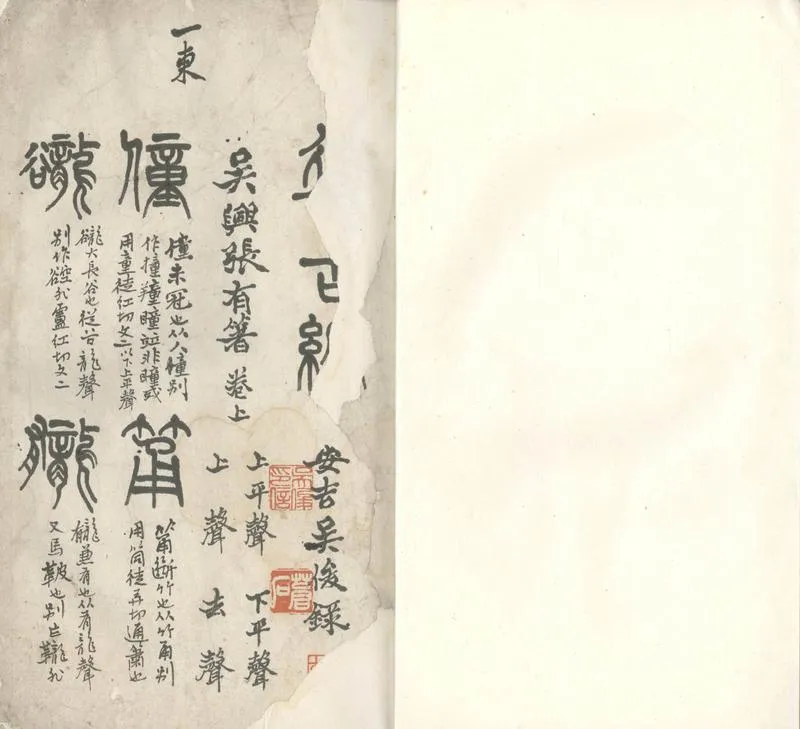 安吉吳俊錄
吳興張有箸 卷上
上平聲 下平聲
上聲 去聲
一東
僮
僮未冠也从人僮別
作撞羶瞳竝非瞳或
用童徒紅切文二以下上平聲
筩
筩斷竹也从竹甬別
用筒徒弄切通簫也
谾
大長谷也從谷龍聲
別作 非盧紅切文二
龓
龓兼有也从有龍聲
又馬鞁也別 非